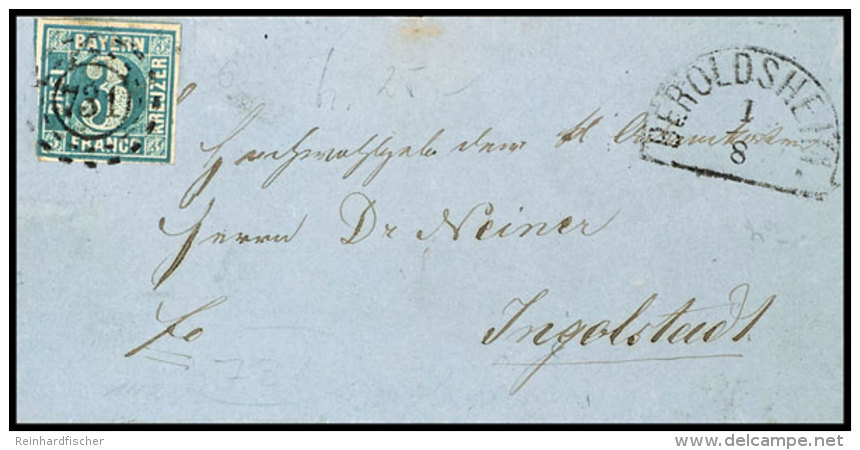 BAYERN
3
731
KREUZER
FRANCO
BEROLDSHEIM.
1
8
Hochwohlgeb. dem
Herrn Dr Neiner
fo
Ingolstadt
Reinhardfischer
www.delcampe.net